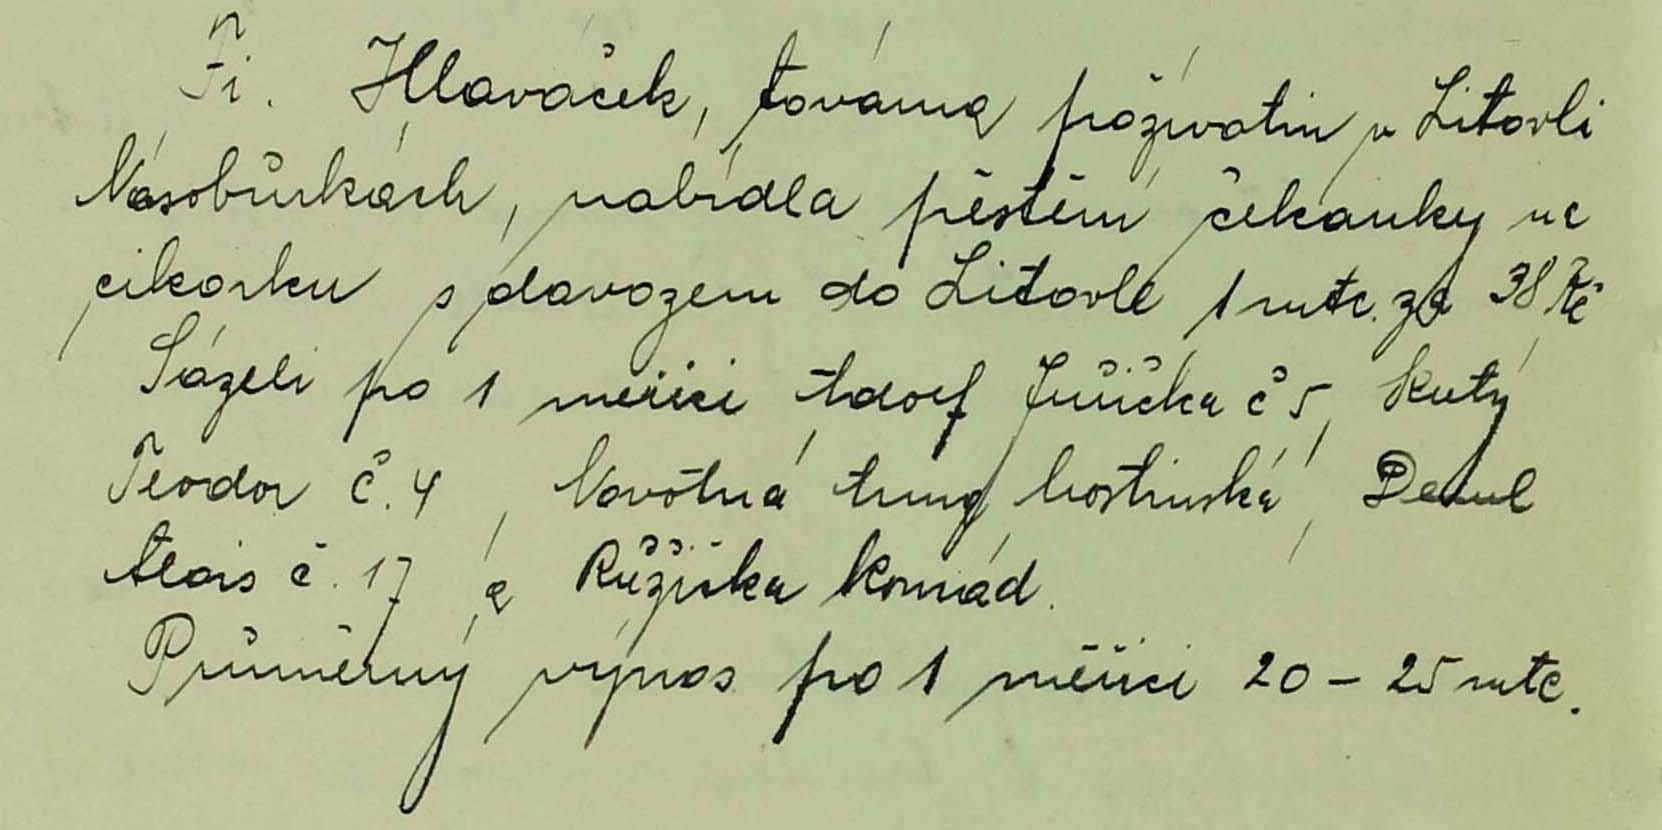 Fi. Hlaváček, továrna požívatin v Litovli
Násobůrkách, nabídla pěstěni čekanky na
cikorku s dovozem do Litovle 1 mtc. za 38 Kč
Sázeli po 1 měřici Adolf Juřička č 5, Kutý
Teodor č. 4, Novotná Anna hostinská,
Alois č. 17 a Růžička Konrád.
Průměrný výnos po 1 měřici 20 – 25 mtc.